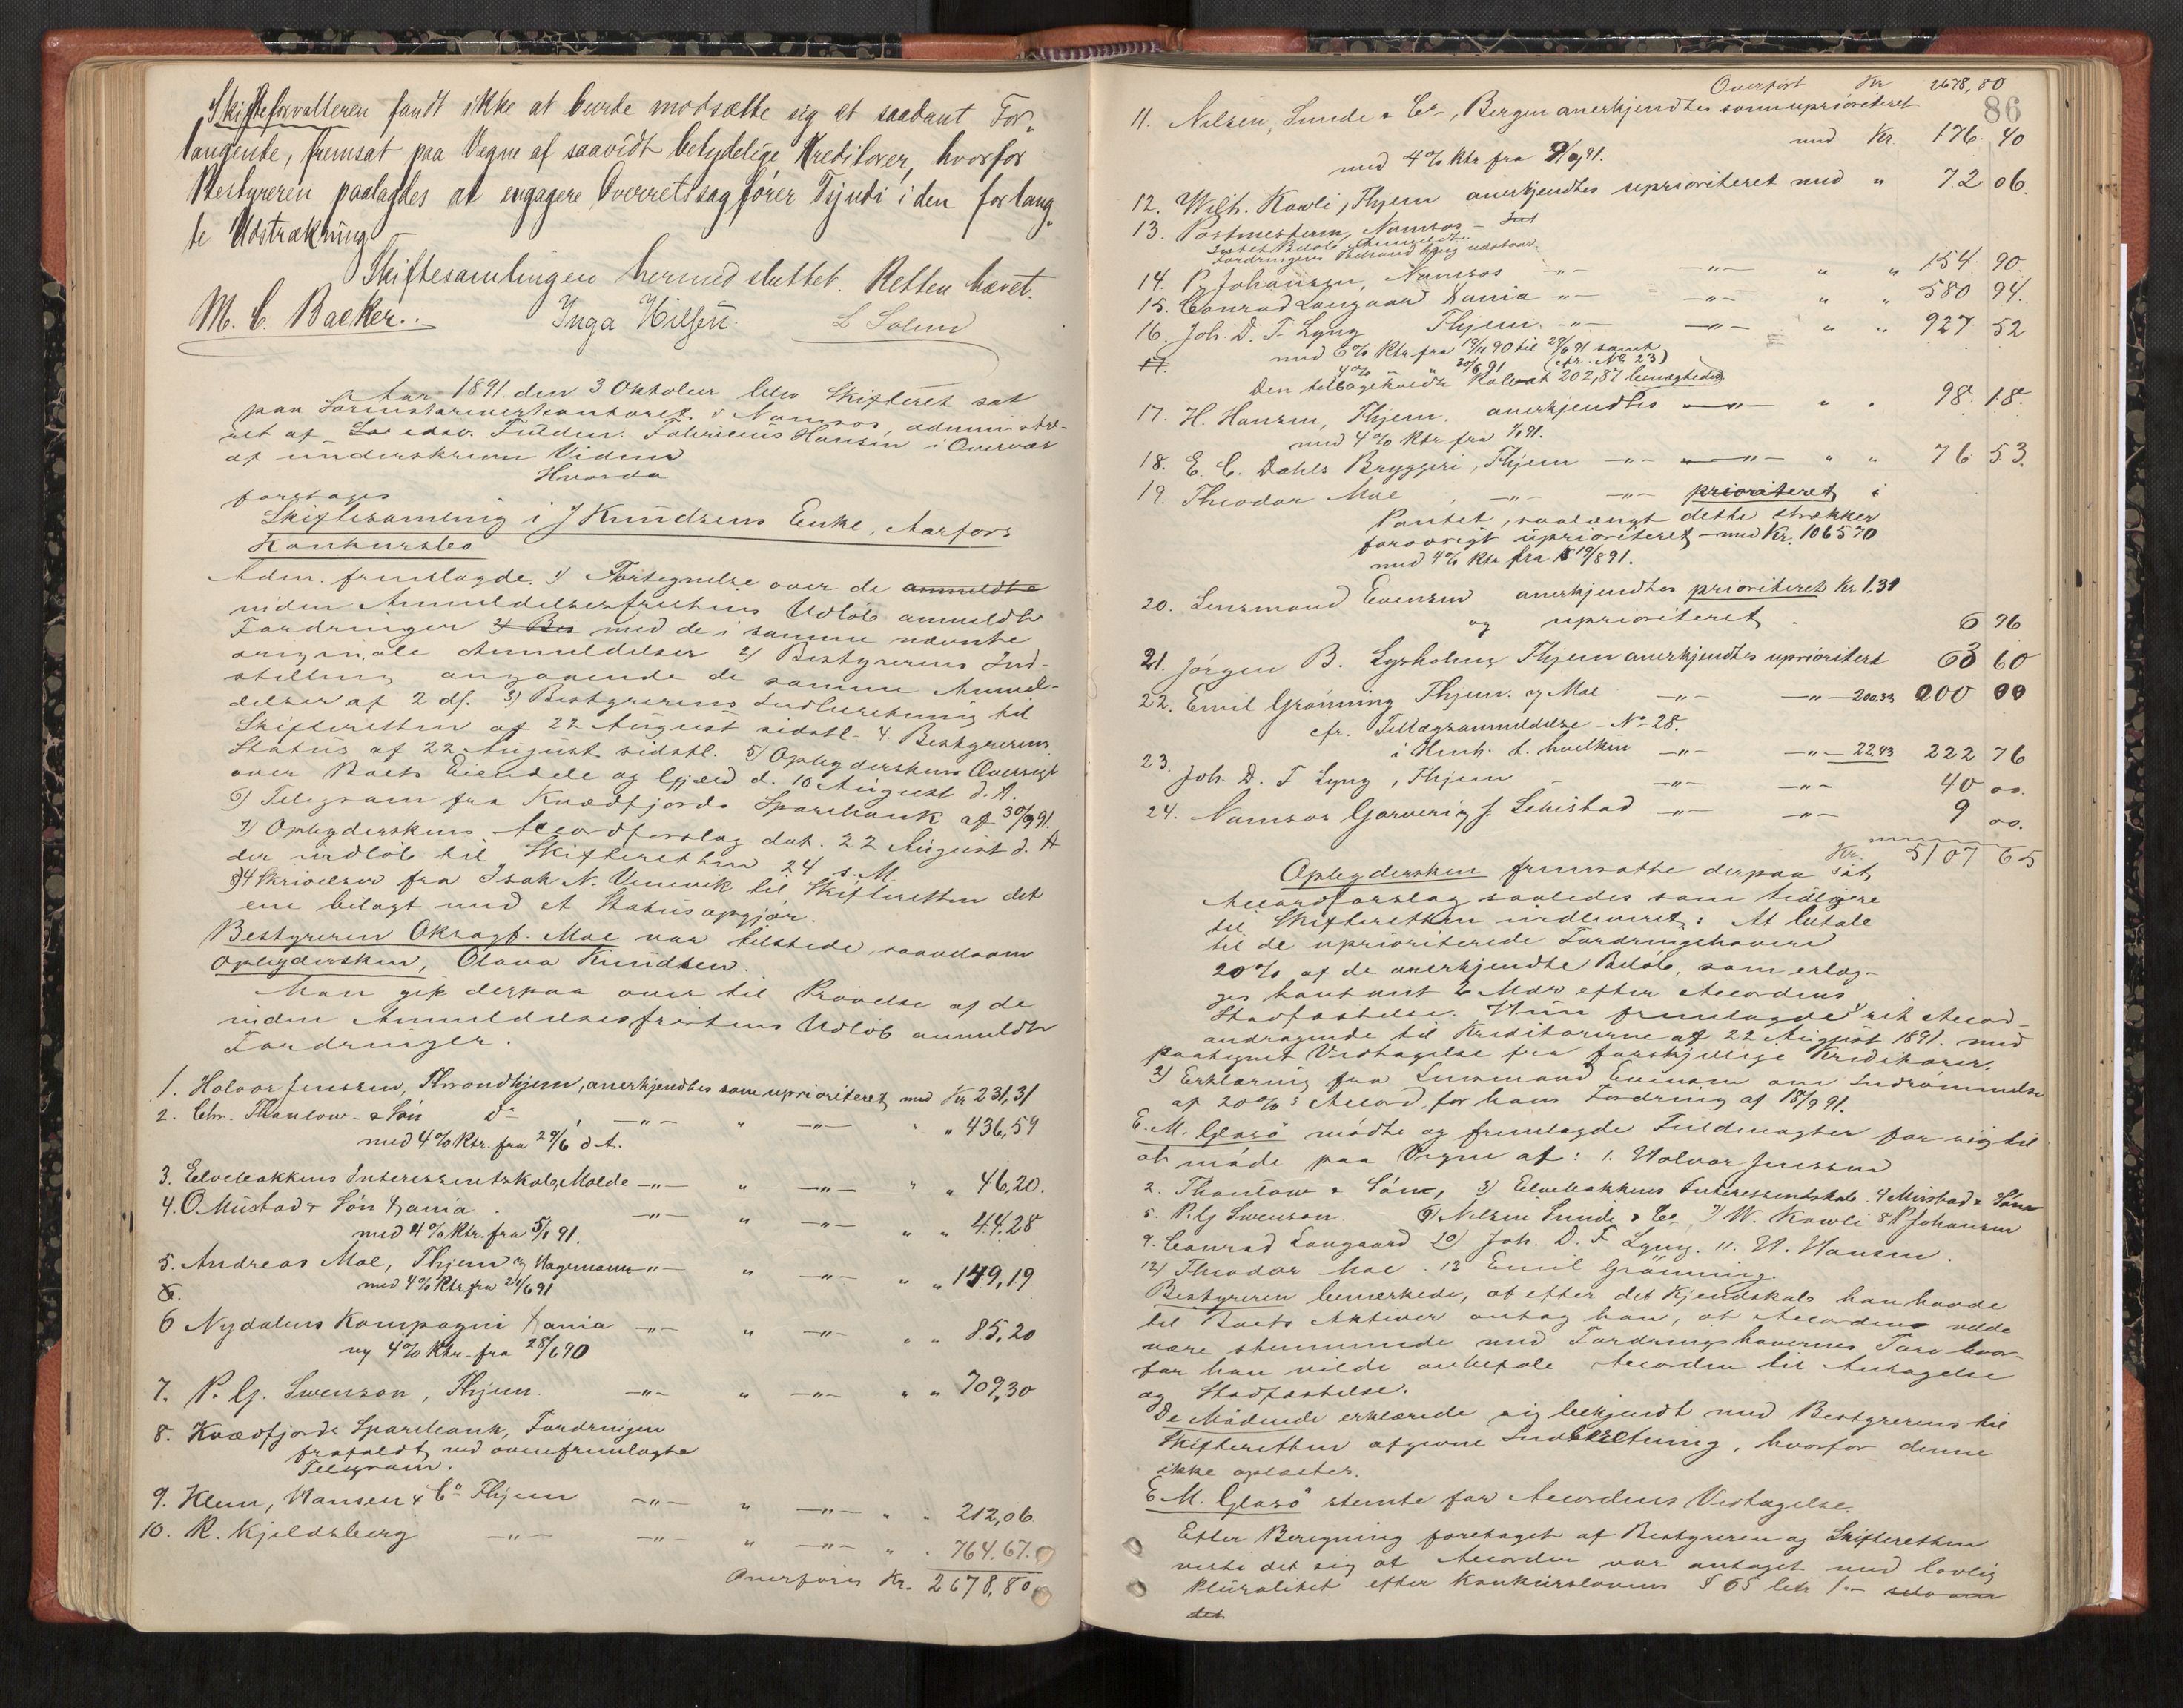 Skifteforvalteren fandt ikke at burde modsætte sig et saadant For-
langende, fremsat paa Vegne af saavidt betydelige Kreditorer, hvorfor
Bestyreren paalagdes at engagere Overretssagfører Tjindi i den forlang-
te Udstrækning
Skiftesamlingen hermed sluttet. Retten hævet.
M. C. Backer. Inga Hilsen. L Solem
Aar 1891 den 3 Oktober blev Skifteret sat
paa Sorenskriverkontoret i Namsos, administre-
ret af edsv. Fuldm. Fabricius Hansen i Overvær
af underskrevne Vidner
Hvorda
foretoges
Skiftesamling i J Knudsens Enke, Aarfors
Konkursbo
Adm. fremlagde 1) Fortegnelse over de anmeldte
inden Anmeldelsesfristens Udløb anmeldte
Fordringer 2) Bes med de i samme nævnte
originale Anmeldelser 2) Bestyrerens Ind-
stilling angaaende de samme Anmel-
delser af 2 ds. 3) Bestyrerens Indberetning til
Skifteretten af 22 August sidstl. 4. Bestyrerens
Status af 22 August sidstl. 5) Opbyderskens Oversigt
over Boets Eiendele og Gjæld d. 10 August d. A.
6) Telegram fra Kvædfjords Sparebank af 30/9 91.
7) Opbyderskens Accordforslag dat. 22 August d. A
der indløb til Skifteretten 24 s. M.
8) 4 Skrivelser fra Isak N. Vennevik til Skifteretten det
ene bilagt med et Statusopgjør.
Bestyreren O.r.sagf. Moe var tilstede saavelsom
Opbydersken, Olava Knudsen.
Man gik derpaa over til Prøvelse af de
inden Anmeldelsesfristens Udløb anmeldte
Fordringer.
1. Halvor Jenssen, Throndhjem, anerkjendtes som uprioriteret med Kr 231,31
2. Chr. Thaulow & Søn do, —"— " —"— " " 436,59
med 4% Rtr. fra 29/6 d.A.
3. Elvebakkens Interessentskab, Molde —"— " —"— " " 46,20.
4. O Mustad & Søn Xania. —"— " —"— " " 44.28
med 4% Rtr. fra 5/1 91.
5. Andreas Moe, Thjem v/ Hagemann —"— " —"— " " 149,19
6. med 4% Rtr fra 24/6 91
6 Nydalens Kompagni Xania —"— " —"— " " 85,20
og 4% Rtr. fra 28/6 90
7. P. G. Svenson, Thjem. —"— " —"— " " 709,30
8. Kvædfjords Sparebank, Fordringen
frafaldt ved ovenfremlagte
Telegram.
9. Klem, Hansen & Co Thjem —"— " —"— " " 212,06
10. R. Kjeldsberg —"— —"— " —"— " " 764.67.
Overføres Kr. 2678,80
Overført Kr 2678,80
86
11. Nilsen, Lunde & Co, Bergen anerkjendtes som uprioriteret
med Kr. 176. 40
med 4% Rtr fra 9/6 91.
12. Wilh. Kawli, Thjem anerkjendtes uprioriteret med " 72 06.
13. Postmesteren, Namsos — Int
Intet Beløb Anmeldt.
Fordringens Behand ling udstaar.
14. P. Johansen, Namsos —"— —"— " " 154. 90.
15. Conrad Langaard Xania —"— —"— " " 580 94.
16. Joh. D. F. Lyng Thjem. —"— —"— " " 927. 52
med 6% Rtr fra 19/11 90 til 29/6 91 samt
17. 4% " " 30/6 91 (cfr. No 23)
Den tilbageholdte Rabat 202,87 benægtedes
17. H. Hansen, Thjem. anerkjendtes —"— " " 98. 18.
med 4% Rtr fra 1/1 91.
18. E. C. Dahls Bryggeri, Thjem —"— —"— " " 76 53.
19. Theodor Moe, —"— —"— prioriteret i
Pantet, saalangt dette strækker
forøvrigt uprioriteret med Kr. 1065 70
med 4% Rtr fra 19/8 91.
20. Lensmand Evensen anerkjendtes prioriteret Kr 1.31
og uprioriteret. 6 96
21. Jörgen B. Lysholm, Thjem anerkjendtes uprioritert 63 60
22. Emil Grönning Thjem. v/ Moe —"— —"— 200.33 200 00
cfr. Tillægsanmeldelse No 28.
i Henh. t. hvilken —"— —"— 22.43 222 76
23. Joh. D. F Lyng, Thjem —"— —"— 40 00.
24. Namsos Garveri v/ J. Sehistad —"— —"— 9 00.
Kr. 5107 65
Opbydersken fremsatte derpaa sit
Accordforslag saaledes som tidligere
til Skifteretten indleveret: At betale
til de uprioriterede Fordringshavere
20% af de anerkjendte Beløb, som erlæg-
ges kontant 2 Mdr efter Accordens
Stadfæstelse. Hun fremlagde 1) sit Accord-
andragende til Kreditorerne af 22 August 1891. med
paategnet Vedtagelse fra forskjellige Kreditorer.
2) Erklæring fra Lensmand Evensen om Indrømmelse
af 20%'s Accord for hans Fordring af 18/9 91.
E. M. Glasø mødte og fremlagde Fuldmagter for sig til
at møde paa Vegne af: 1. Halvor Jenssen
2. Thaulow & Søn, 3) Elvebakkens Interessentskab. 4 Mustad & Søn
5. P. G Svenson 6) Nilsen Lunde & Co, 7) W. Kawli 8 P Johansen
9. Conrad Langaard 10) Joh. D. F. Lyng. 11. H. Hansen.
12) Theodor Moe. 13 Emil Grönning.
Bestyreren bemærkede, at efter det Kjendskab han havde
til Boets Aktiver antog han, at Accorden vilde
være stemmende med Fordringshavernes Tarv hvor-
for han vilde anbefale Accorden til Antagelse
og Stadfæstelse.
De Mødende erklærede sig bekjendt med Bestyrerens til
Skifteretten afgivne Indberetning, hvorfor denne
ikke oplæstes.
E M. Glasø stemte for Accordens Vedtagelse.
Efter Beregning foretaget af Bestyreren og Skifteretten
viste det sig at Accorden var antaget med lovlig
Pluralitet efter Konkurslovens § 65 litr 1 — selv om
det